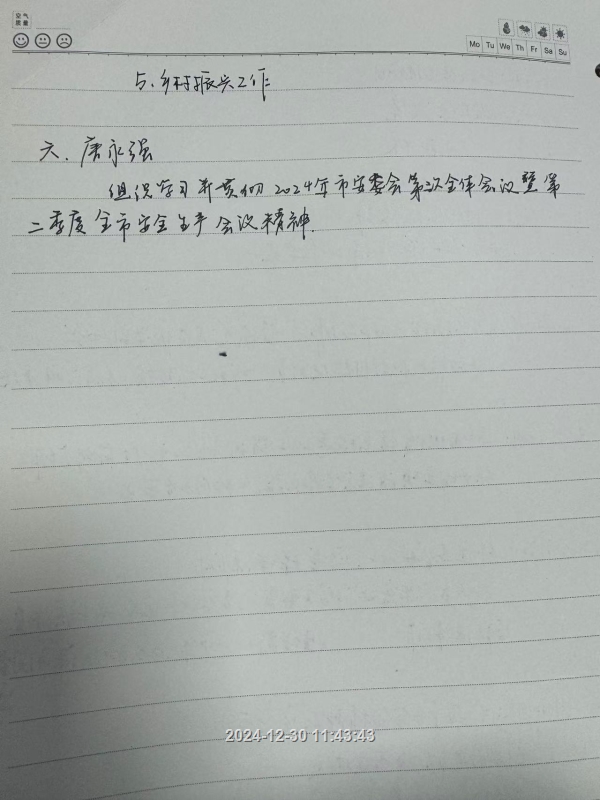 空气
质量
Mo Tu We Th Fr Sa Su
5、乡村振兴工作
六、唐永强
组织学习并贯彻2024年市安委会第次全体会议暨第
二季度全市安全生产会议精神.
2024-12-30 11:43:43